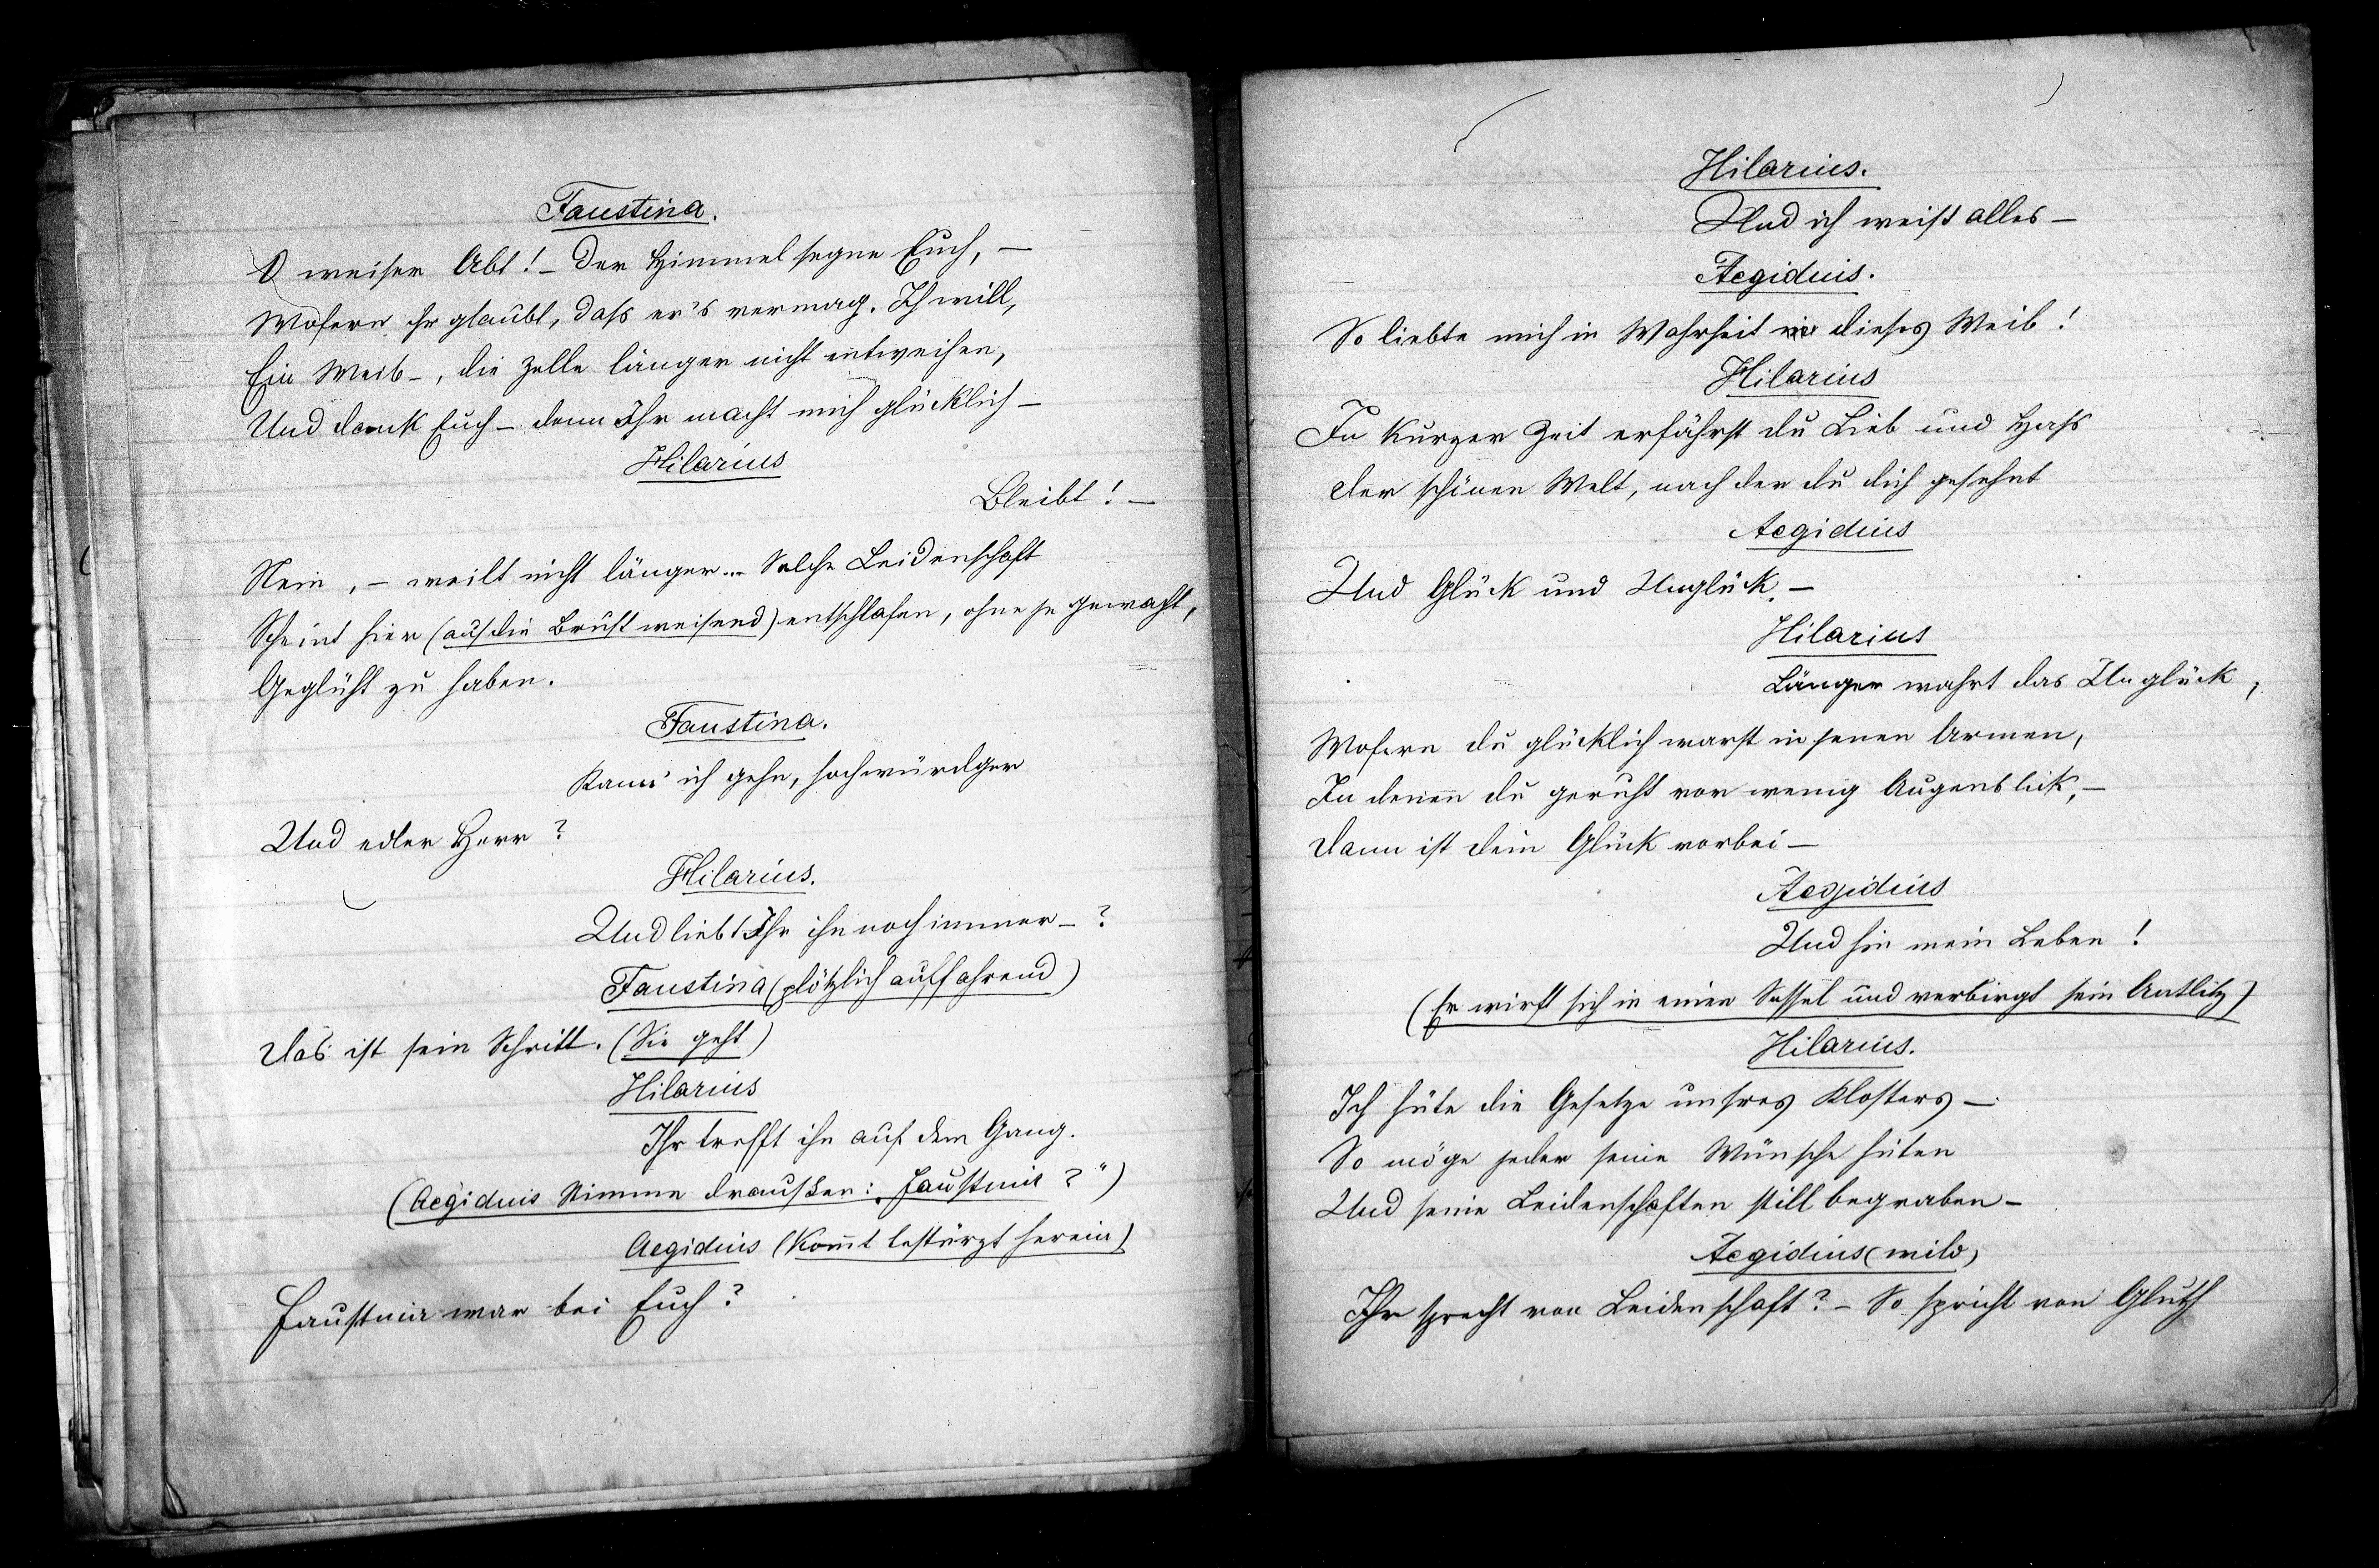 Faustina.
O weiser Abt! – Der Himmel segne Euch, –
Wofern ihr glaubt, daß er's vermag. Ich will,
Ein Weib –, die Zelle länger nicht entweihen,
Und dank Euch – denn Ihr macht mich glücklich –
Hilarius
Bleibt! –
Nein, – weilt nicht länger... Solche Leidenschaft
Scheint hier (auf die Brust weisend) entschlafen, ohne je gewacht,
Geglüht zu haben.
Faustina.
Kann ich gehn, hochwürdger
Und edler Herr?
Hilarius.
Und liebt Ihr ihn noch immer –?
Faustina (plötzlich auffahrend)
Das ist sein Schritt. (Sie geht)
Hilarius
Ihr trefft ihn auf dem Gang.
(Aegidius Stimme draußen: „Faustina?“)
Aegidius (kom̅t bestürzt herein)
Faustina war bei Euch?
Hilarius.
Und ich weiß alles –
Aegidius.
So liebte mich in Wahrheit dieses Weib!
Hilarius
In kurzer Zeit erfährst du Lieb und Haß
Der schönen Welt, nach der du dich gesehnt
Aegidius
Und Glück und Unglück. –
Hilarius
Länger wahrt das Unglück,
Wofern du glücklich warst in jenen Armen,
In denen du geruht vor wenig Augenblick, –
Dann ist dein Glück vorbei –
Aegidius
Und hin mein Leben!
(Er wirft sich in einen Sessel und verbirgt sein Antlitz)
Hilarius.
Ich hüte die Gesetze unsres Klosters –
So möge jeder seine Wünsche hüten
Und seine Leidenschaften still begraben –
Aegidius (wild)
Ihr sprecht von Leidenschaft? – So spricht von Gluth